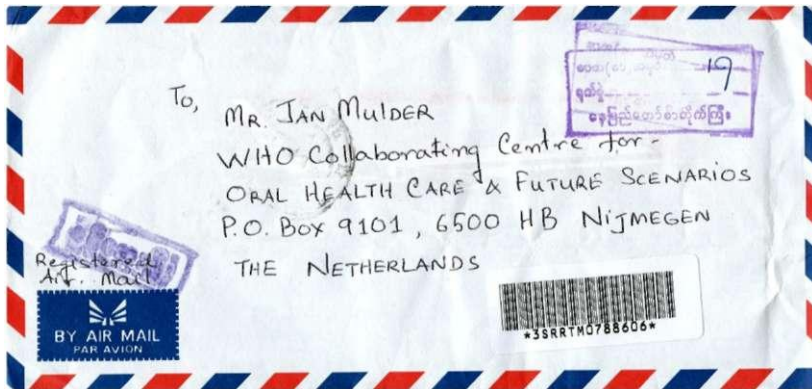 To,
MR. JAN MULDER
WHO Collaborating Centre for-
ORAL HEALTH CARE & FUTURE SCENARIOS
P.O. BOX 9101, 6500 HB NIJMEGEN
THE NETHERLANDS
19
ရက်စွဲ
နေပြည်တော်စာတိုက်ကြီး
Registered
Air. Mail
BY AIR MAIL
PAR AVION
*3SRRTM0788606*